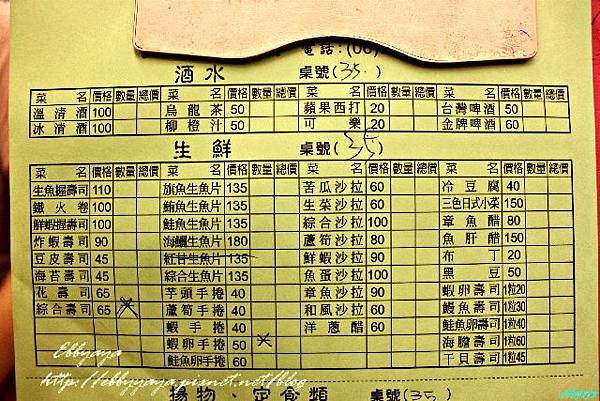 電話:(06)
酒水 桌號(35)
菜名 價格 數量 總價 菜名 價格 數量 總價 菜名 價格 數量 總價 菜名 價格 數量 總價
溫清酒 100 烏龍茶 50 蘋果西打 20 台灣啤酒 50
冰清酒 100 柳橙汁 50 可樂 20 金牌啤酒 60
生鮮 桌號(35)
菜名 價格 數量 總價 菜名 價格 數量 總價 菜名 價格 數量 總價 菜名 價格 數量 總價
生魚握壽司 110 旗魚生魚片 135 苦瓜沙拉 60 冷豆腐 40
鐵火卷 100 鮪魚生魚片 135 生菜沙拉 60 三色日式小菜 150
鮮蝦握壽司 100 鮭魚生魚片 135 綜合沙拉 100 章魚醋 80
炸蝦壽司 90 海鱺生魚片 180 蘆筍沙拉 80 魚肝醋 150
豆皮壽司 45 紅甘生魚片 135 鮮蝦沙拉 90 布丁 20
海苔壽司 45 綜合生魚片 135 魚蛋沙拉 100 黑豆 50
花壽司 65 芋頭手捲 40 章魚沙拉 90 蝦卵壽司 1粒20
綜合壽司 65 蘆筍手捲 40 和風沙拉 60 鰻魚壽司 1粒30
蝦手捲 40 洋蔥醋 60 鮭魚卵壽司 1粒40
蝦卵手捲 50 海膽壽司 1粒60
鮭魚卵手捲 60 干貝壽司 1粒45
Ebbyaya
http://ebbyyaya.pixnet.net/blog
揚物、定食類 桌號(35)